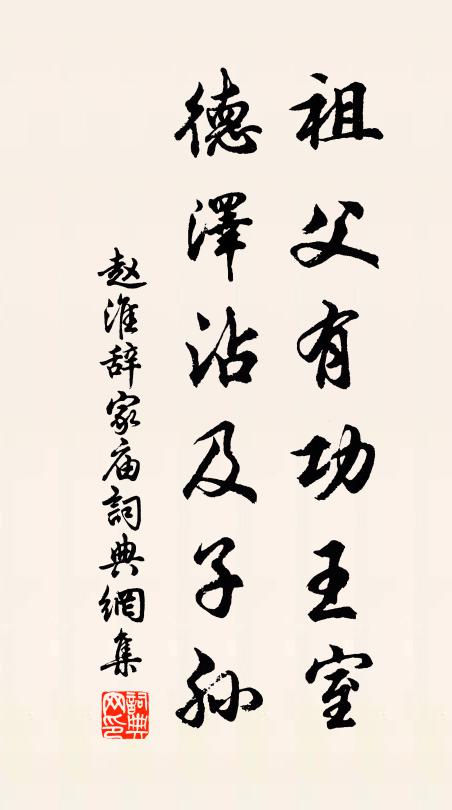 祖父有功王室
德澤沾及子孙
赵淮辞家庙詞典網集
詞典
网印